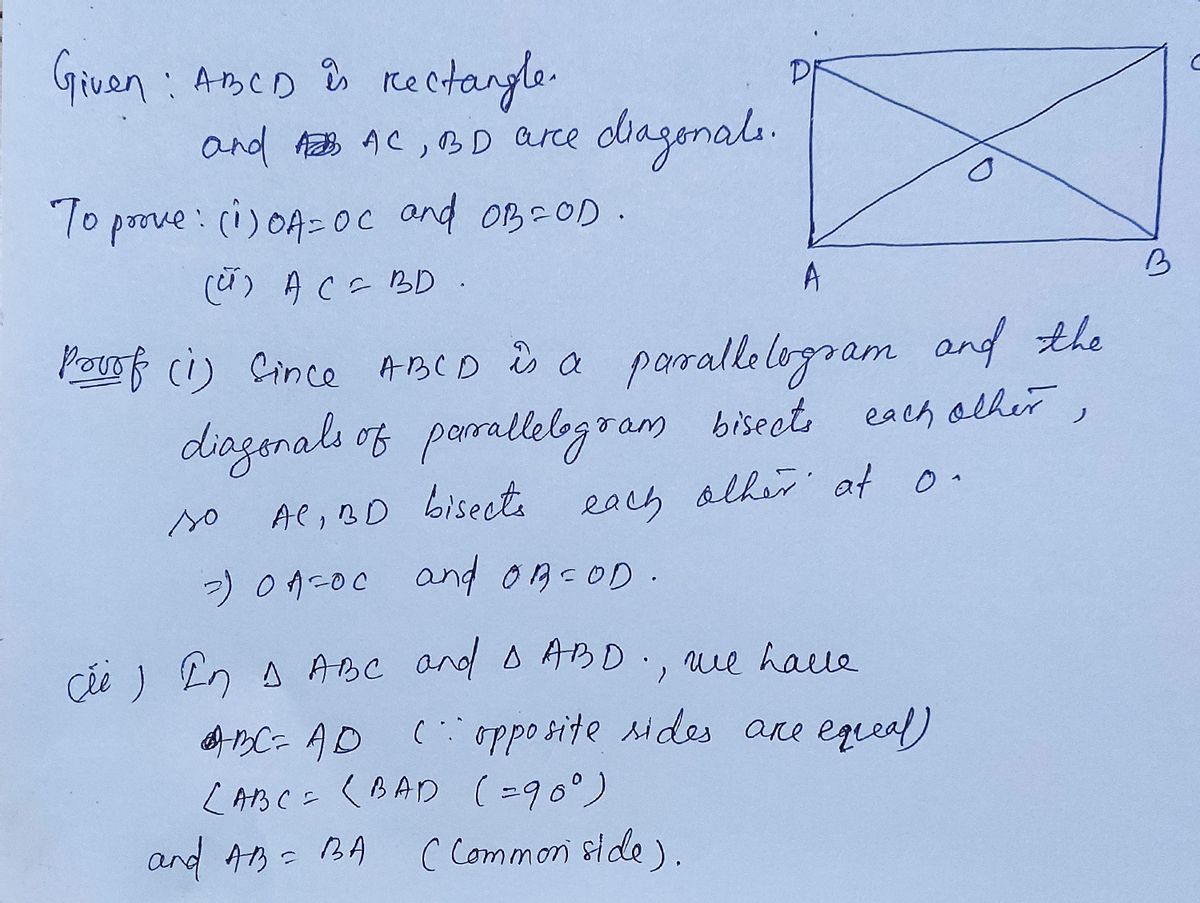 Given : ABCD is rectangle.
and AC, BD are diagonals.
To prove : (i) OA=OC and OB=OD.
(ii) AC = BD.
Proof (i) Since ABCD is a parallelogram and the
diagonals of parallelogram bisects each other,
so AC, BD bisects each other at O.
=) OA=OC and OB=OD.
(ii) In Δ ABC and Δ ABD., we have
BC= AD (∵ opposite sides are equal)
∠ABC = ∠BAD (=90°)
and AB = BA (Common side).
D
C
O
A
B